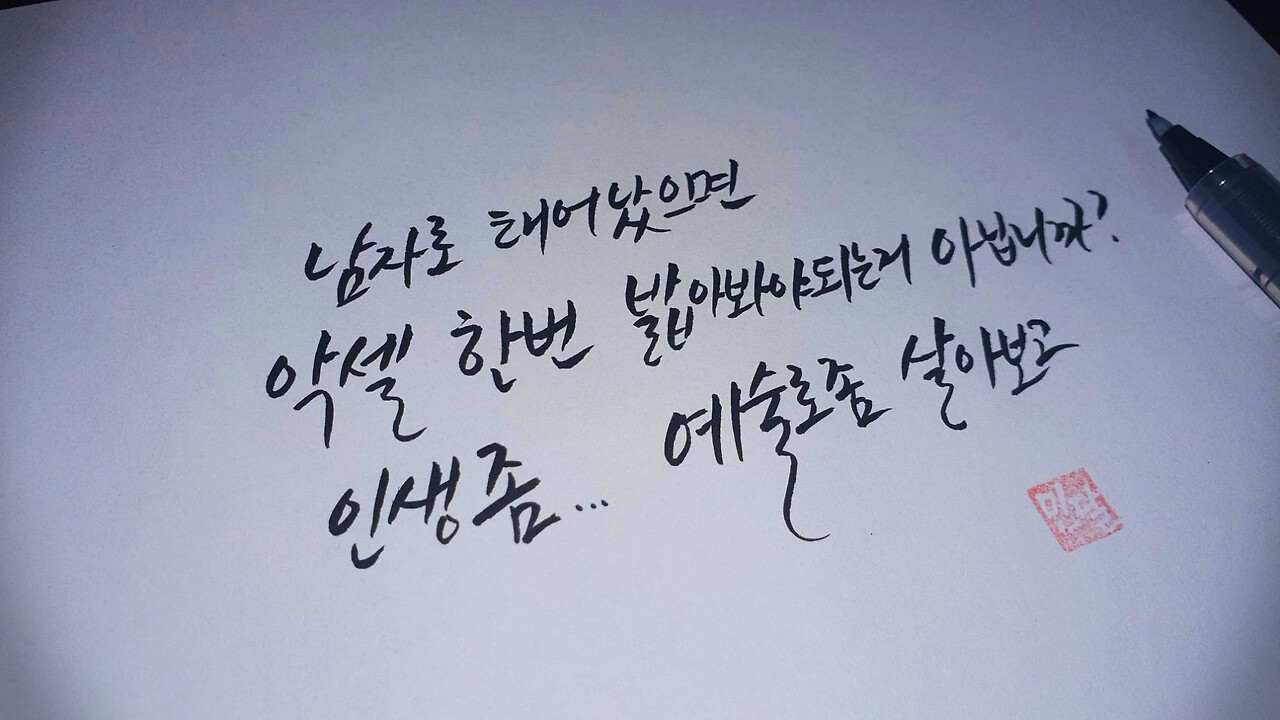 남자로 태어났으면
악셀 한번 밟아봐야되는거 아닙니까?
인생좀... 예술로좀 살아보고